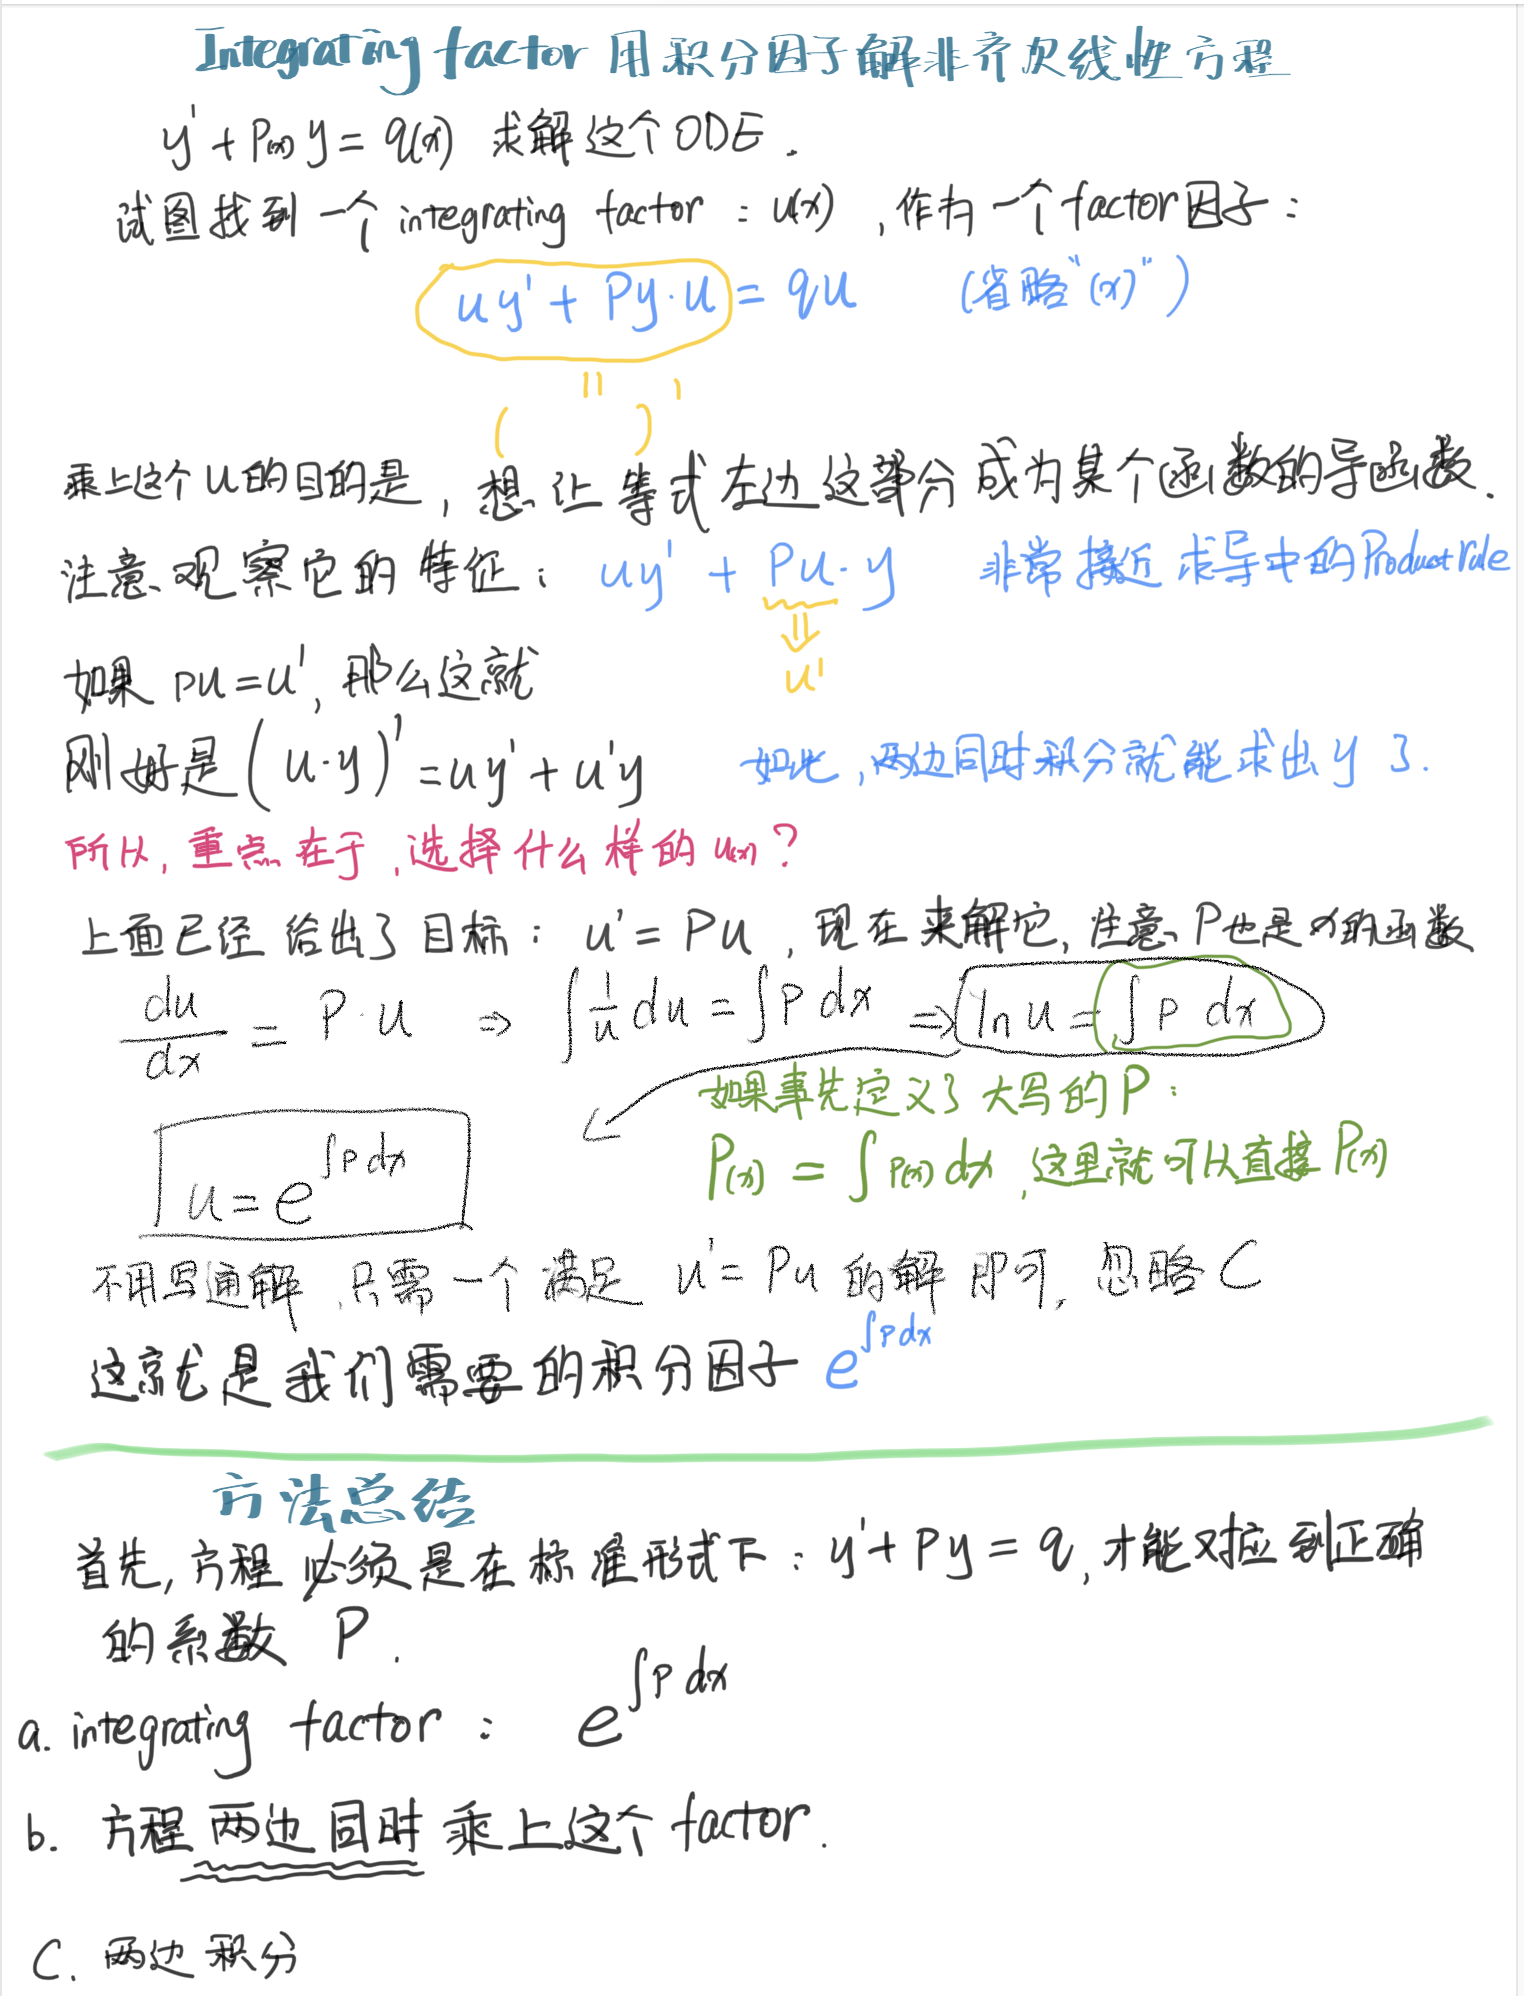 Integrating factor 用积分因子解非齐次线性方程
y' + P(x) y = q(x) 求解这个ODE.
试图找到一个 integrating factor : u(x) , 作为一个factor因子:
uy' + Py·u = qu (省略"(x)")
" '
( )
乘上这个u的目的是, 想让等式左边这部分成为某个函数的导函数.
注意观察它的特征: uy' + Pu·y 非常接近求导中的Product rule
⇓
u'
如果 pu=u', 那么这就
刚好是(u·y)' = uy' + u'y 如此, 两边同时积分就能求出y了.
所以, 重点在于, 选择什么样的u(x)?
上面已经给出了目标: u' = Pu, 现在来解它, 注意P也是x的函数
du/dx = P·u ⇒ ∫1/u du = ∫P dx ⇒ ln u = ∫P dx
如果事先定义了大写的P:
u = e^∫P dx P(x) = ∫P(x) dx, 这里就可以直接P(x)
不用写通解, 只需一个满足 u' = Pu 的解即可, 忽略C
这就是我们需要的积分因子 e^∫P dx
方法总结
首先, 方程必须是在标准形式下: y' + Py = q, 才能对应到正确
的系数 P.
a. integrating factor : e^∫P dx
b. 方程两边同时乘上这个factor.
C. 两边积分